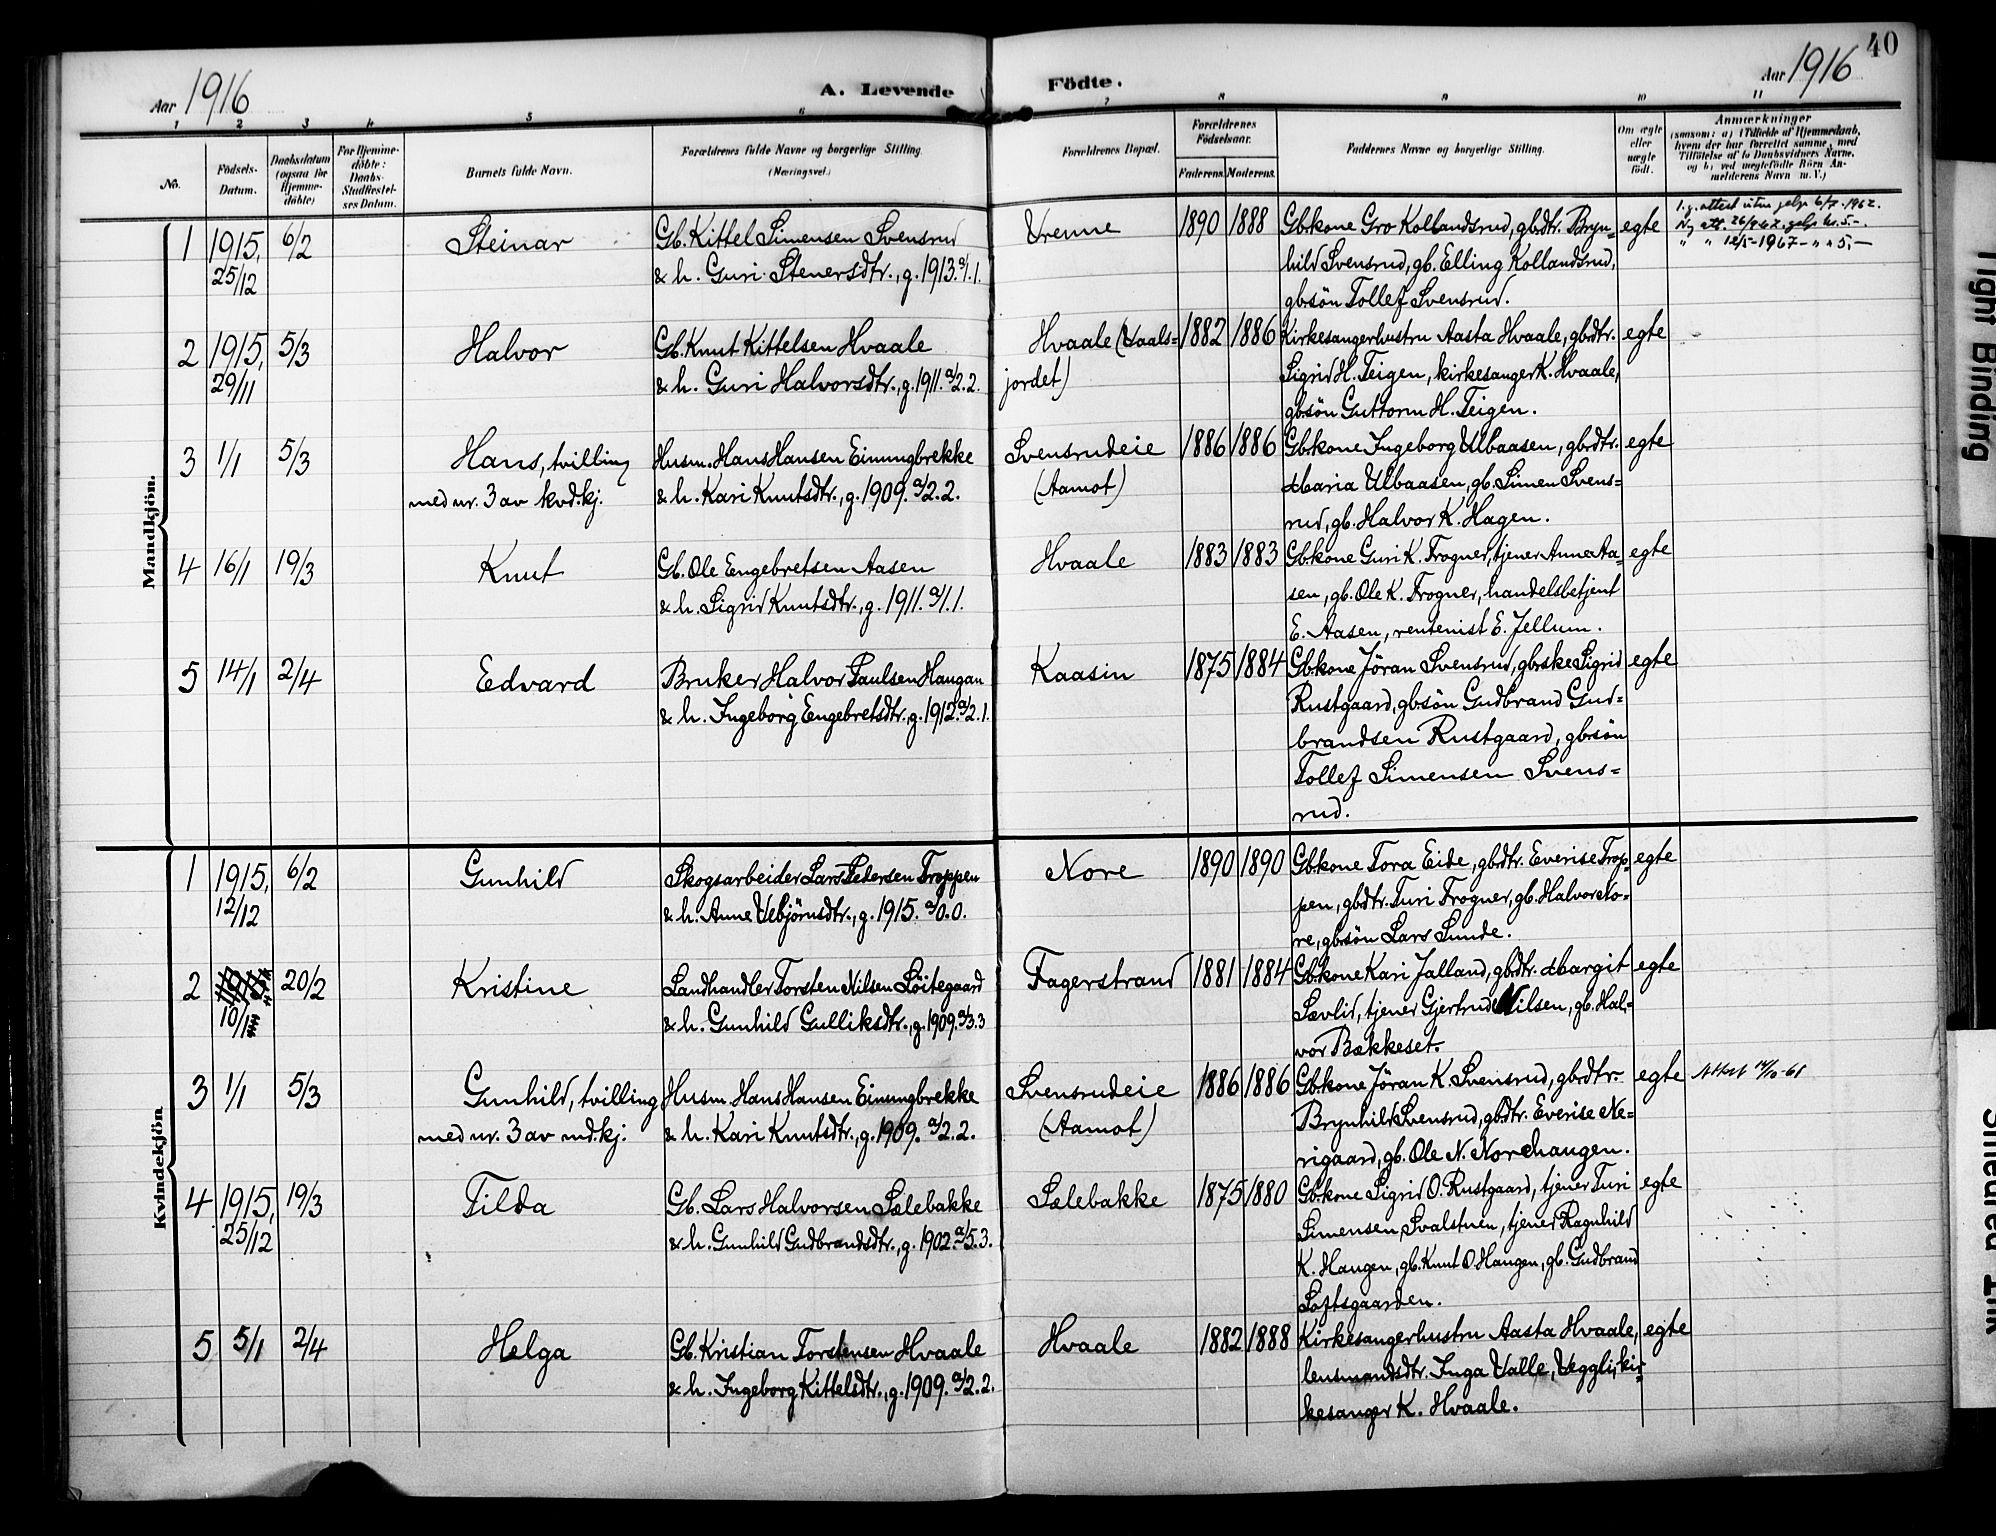 40
Aar 1916
A. Levende
Födte.
Aar 1916
1 2 3 4 5 6 7 8 9 10 11
No.
Födsels-
Datum.
Daabsdatum
(ogsaa for
Hjemme-
döbte)
For Hjemme-
döbte:
Daabs-
Stadfæstel-
ses Datum.
Barnets fulde Navn.
Forældrenes fulde Navne og borgerlige Stilling
(Næringsvei.)
Forældrenes Bopæl.
Forældrenes
Födselsaar.
Faderens. Moderens.
Faddernes Navne og borgerlige Stilling.
Om ægte
eller
uægte
födt.
Anmærkninger
(saasom: a) i Tilfælde af Hjemmedaab,
hvem der har forrettet samme, med
Tilföielse af to Daabsvidners Navne,
og b) ved uægtefödte Börn An-
melderens Navn m. V.)
Mandkjön.
1 1915, 6/2 Steinar Gb. Kittel Simensen Svensrud Vrenne 1890 1888 Gbkone Gro Kollandsrud, gbdtr. Bryn= egte
25/12 & h. Guri Stenersdtr., g. 1913. a/1.1. hild Svensrud, gb. Elling Kollandsrud,
gbsön Tollef Svensrud.
l.g. attest uten gebyr 6/7-1962.
Ny att. 26/9 62. gebyr kr. 5.-
" " 12/5-1967 - " " 5,-
2 1915, 5/3 Halvor Gb. Knut Kittelsen Hvaale Hvaale (Vaals= 1882 1886 Kirkesangerhustru Aasta Hvaale, gbrdtr. egte
29/11 & h. Guri Halvorsdtr., g. 1911. a/2.2. jordet) Sigrid H. Teigen, kirkesanger K. Hvaale,
gbsön Guttorm H. Teigen.
3 1/1 5/3 Hans, tvilling Husm. Hans Hansen Einungbrekke Svensrudeie 1886 1886 Gbkone Ingeborg Ulbaasen, gbrdtr. egte
med nr. 3 av kvd.kj. & h. Kari Knutsdtr., g. 1909. a/2.2. (Aamot) Maria Ulbaasen, gb. Simen Svens=
rud, gb. Halvor K. Hagen.
4 16/1 19/3 Knut Gb. Ole Engebretsen Aasen Hvaale 1883 1883 Gbkone Guri K. Frogner, tjener Anne Aa= egte
& h. Sigrid Knutsdtr., g. 1911. a/1.1. sen, gb. Ole K. Frogner, handelsbetjent
E. Aasen, rentenist E. Jellum.
5 14/1 2/4 Edvard Bruker Halvor Paulsen Haugan Kaasin 1875 1884 Gbkone Jöran Svensrud, gbrske Sigrid egte
& h. Ingeborg Engebretsdtr. g. 1912. a/2.1. Rustgaard, gbsön Gudbrand Gud=
brandsen Rustgaard, gbsön
Tollef Simensen Svens=
rud.
Kvindekjön
1 1915, 6/2 Gunhild Skogsarbeider Lars Petersen Troppen Nore 1890 1890 Gbkone Tora Eide, gbrdtr. Everise Trop= egte
12/12 & h. Anne Vebjörnsdtr., g. 1915. a/0.0. pen, gbdtr. Turi Frogner, gb. Halvor No=
re, gbsön Lars Sunde.
2 20/2 Kristine Landhandler Torsten Nilsen Löitegaard Fagerstrand 1881 1884 Gbkone Kari Jalland, gbrdtr. Margit egte
10/1 & h. Gunhild Gulliksdtr., g. 1909. a/3.3 Sævlid, tjener Gjertrud Nilsen, gb. Hal=
vor Bækkeset.
3 1/1 5/3 Gunhild, tvilling Husm. Hans Hansen Einungbrekke Svensrudeie 1886 1886 Gbkone Jöran K. Svensrud, gbrdtr. egte Attest 14/10-68
med nr. 3 av md.kj. & h. Kari Knutsdtr., g. 1909. a/2.2. (Aamot) Brynhild Svensrud, gbdtr. Everise Ne=
rigaard, gb. Ole N. Nordhaugen.
4 1915, 19/3 Tilda Gb. Lars Halvorsen Sælebakke Sælebakke 1875 1880 Gbkone Sigrid O. Rustgaard, tjener Turi egte
25/12 & h. Gunhild Gudbrandsdtr., g. 1902. a/5.3. Simensen Svalstuen, tjener Ragnhild
K. Haugen, gb. Knut O. Haugen, gb. Gudbrand
Loftsgaarden.
5 5/1 2/4 Helga Gb. Kristian Torstensen Hvaale Hvaale 1882 1888 Kirkesangerhustru Aasta Hvaale, egte
& h. Ingeborg Kittelsdtr., g. 1909. a/2.2. lensmandsdtr. Inga Valle, Veggli, kir=
kesanger K. Hvaale.
Tight Binding